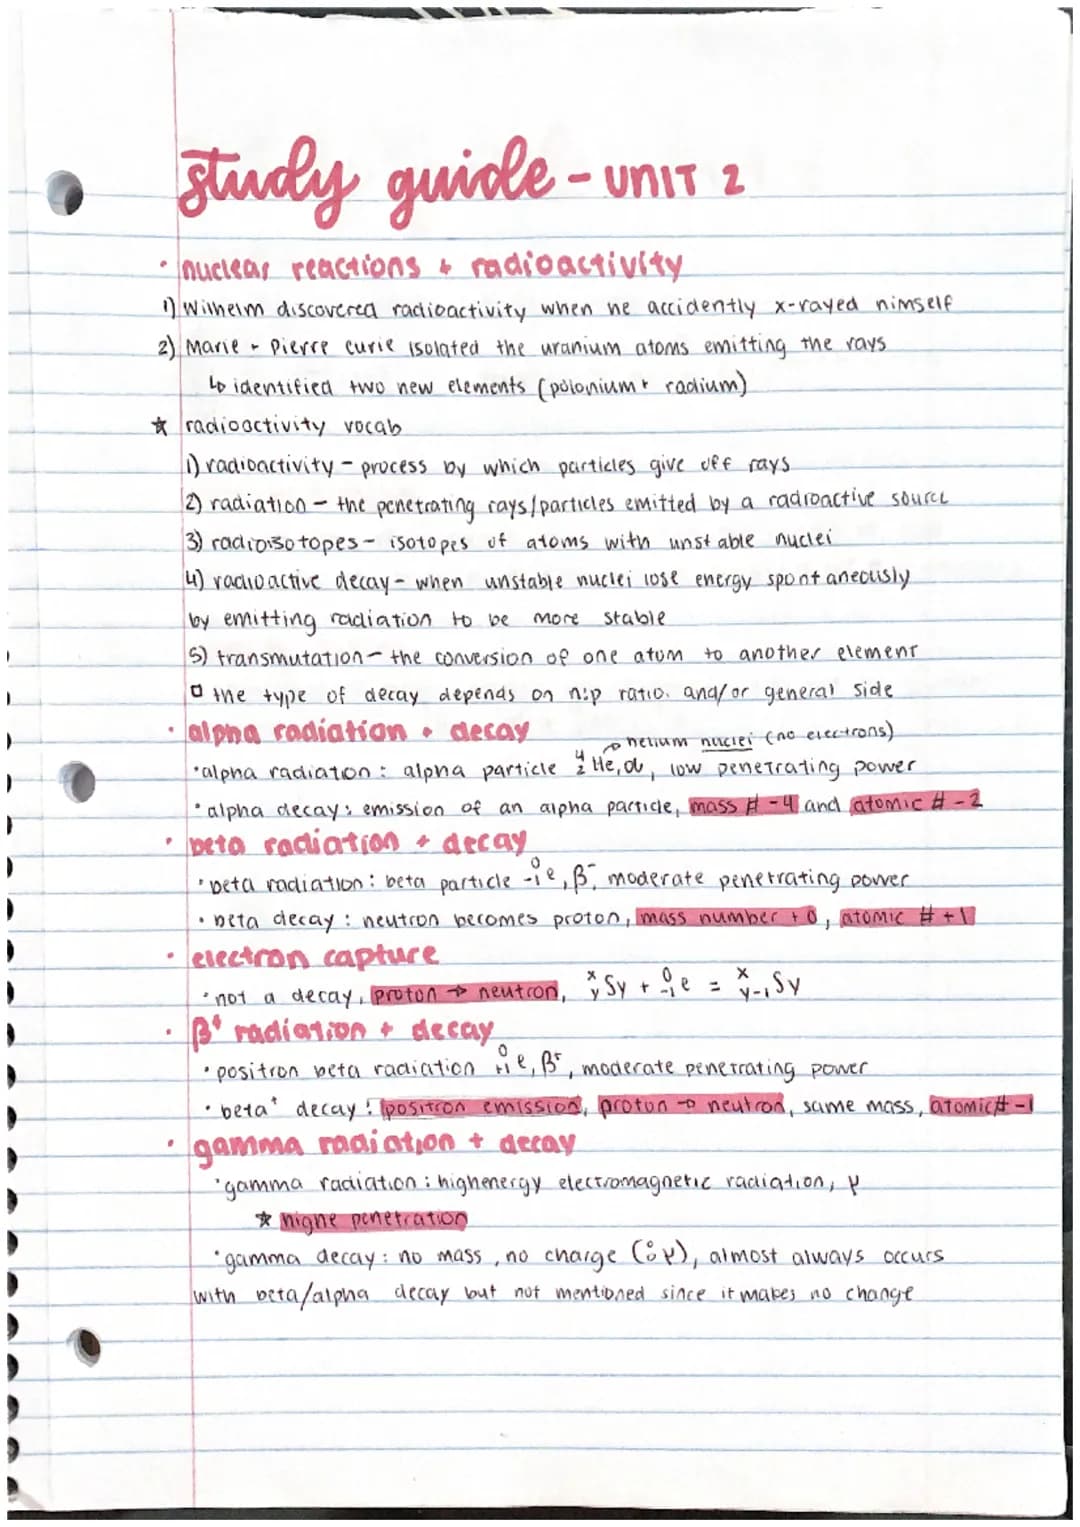 study guide - UNIT 2
· nuclear reactions + radioactivity
1) Wilhelm discovered radioactivity when he accidently x-rayed himself
2) Marie + Pierre curie isolated the uranium atoms emitting the rays
↳ identified two new elements (polonium + radium)
☆ radioactivity vocab
1) radioactivity - process by which particles give off rays
2) radiation - the penetrating rays/particles emitted by a radioactive source
3) radioisotopes - isotopes of atoms with unstable nuclei
4) radioactive decay - when unstable nuclei lose energy spontaneously
by emitting radiation to be more stable
5) transmutation - the conversion of one atom to another element
□ the type of decay depends on n:p ratio. and/or general side
· alpha radiation + decay
→ helium nuclei (no electrons)
· alpha radiation: alpha particle ⁴₂He, α, low penetrating power
· alpha decay: emission of an alpha particle, mass # -4 and atomic # -2
· beta radiation + decay
· beta radiation: beta particle ⁰₋₁e, β⁻, moderate penetrating power
· beta decay: neutron becomes proton, mass number + 0, atomic # +1
· electron capture
· not a decay, proton → neutron, ˣᵧSy + ⁰₋₁e = ˣᵧ₋₁Sy
· β⁺ radiation + decay
· positron beta radiation ⁰₊₁e, β⁺, moderate penetrating power
· beta⁺ decay: positron emission, proton → neutron, same mass, atomic# -1
· gamma radiation + decay
· gamma radiation: highenergy electromagnetic radiation, γ
☆ highe penetration
· gamma decay: no mass, no charge (⁰₀γ), almost always occurs
with beta/alpha decay but not mentioned since it makes no change